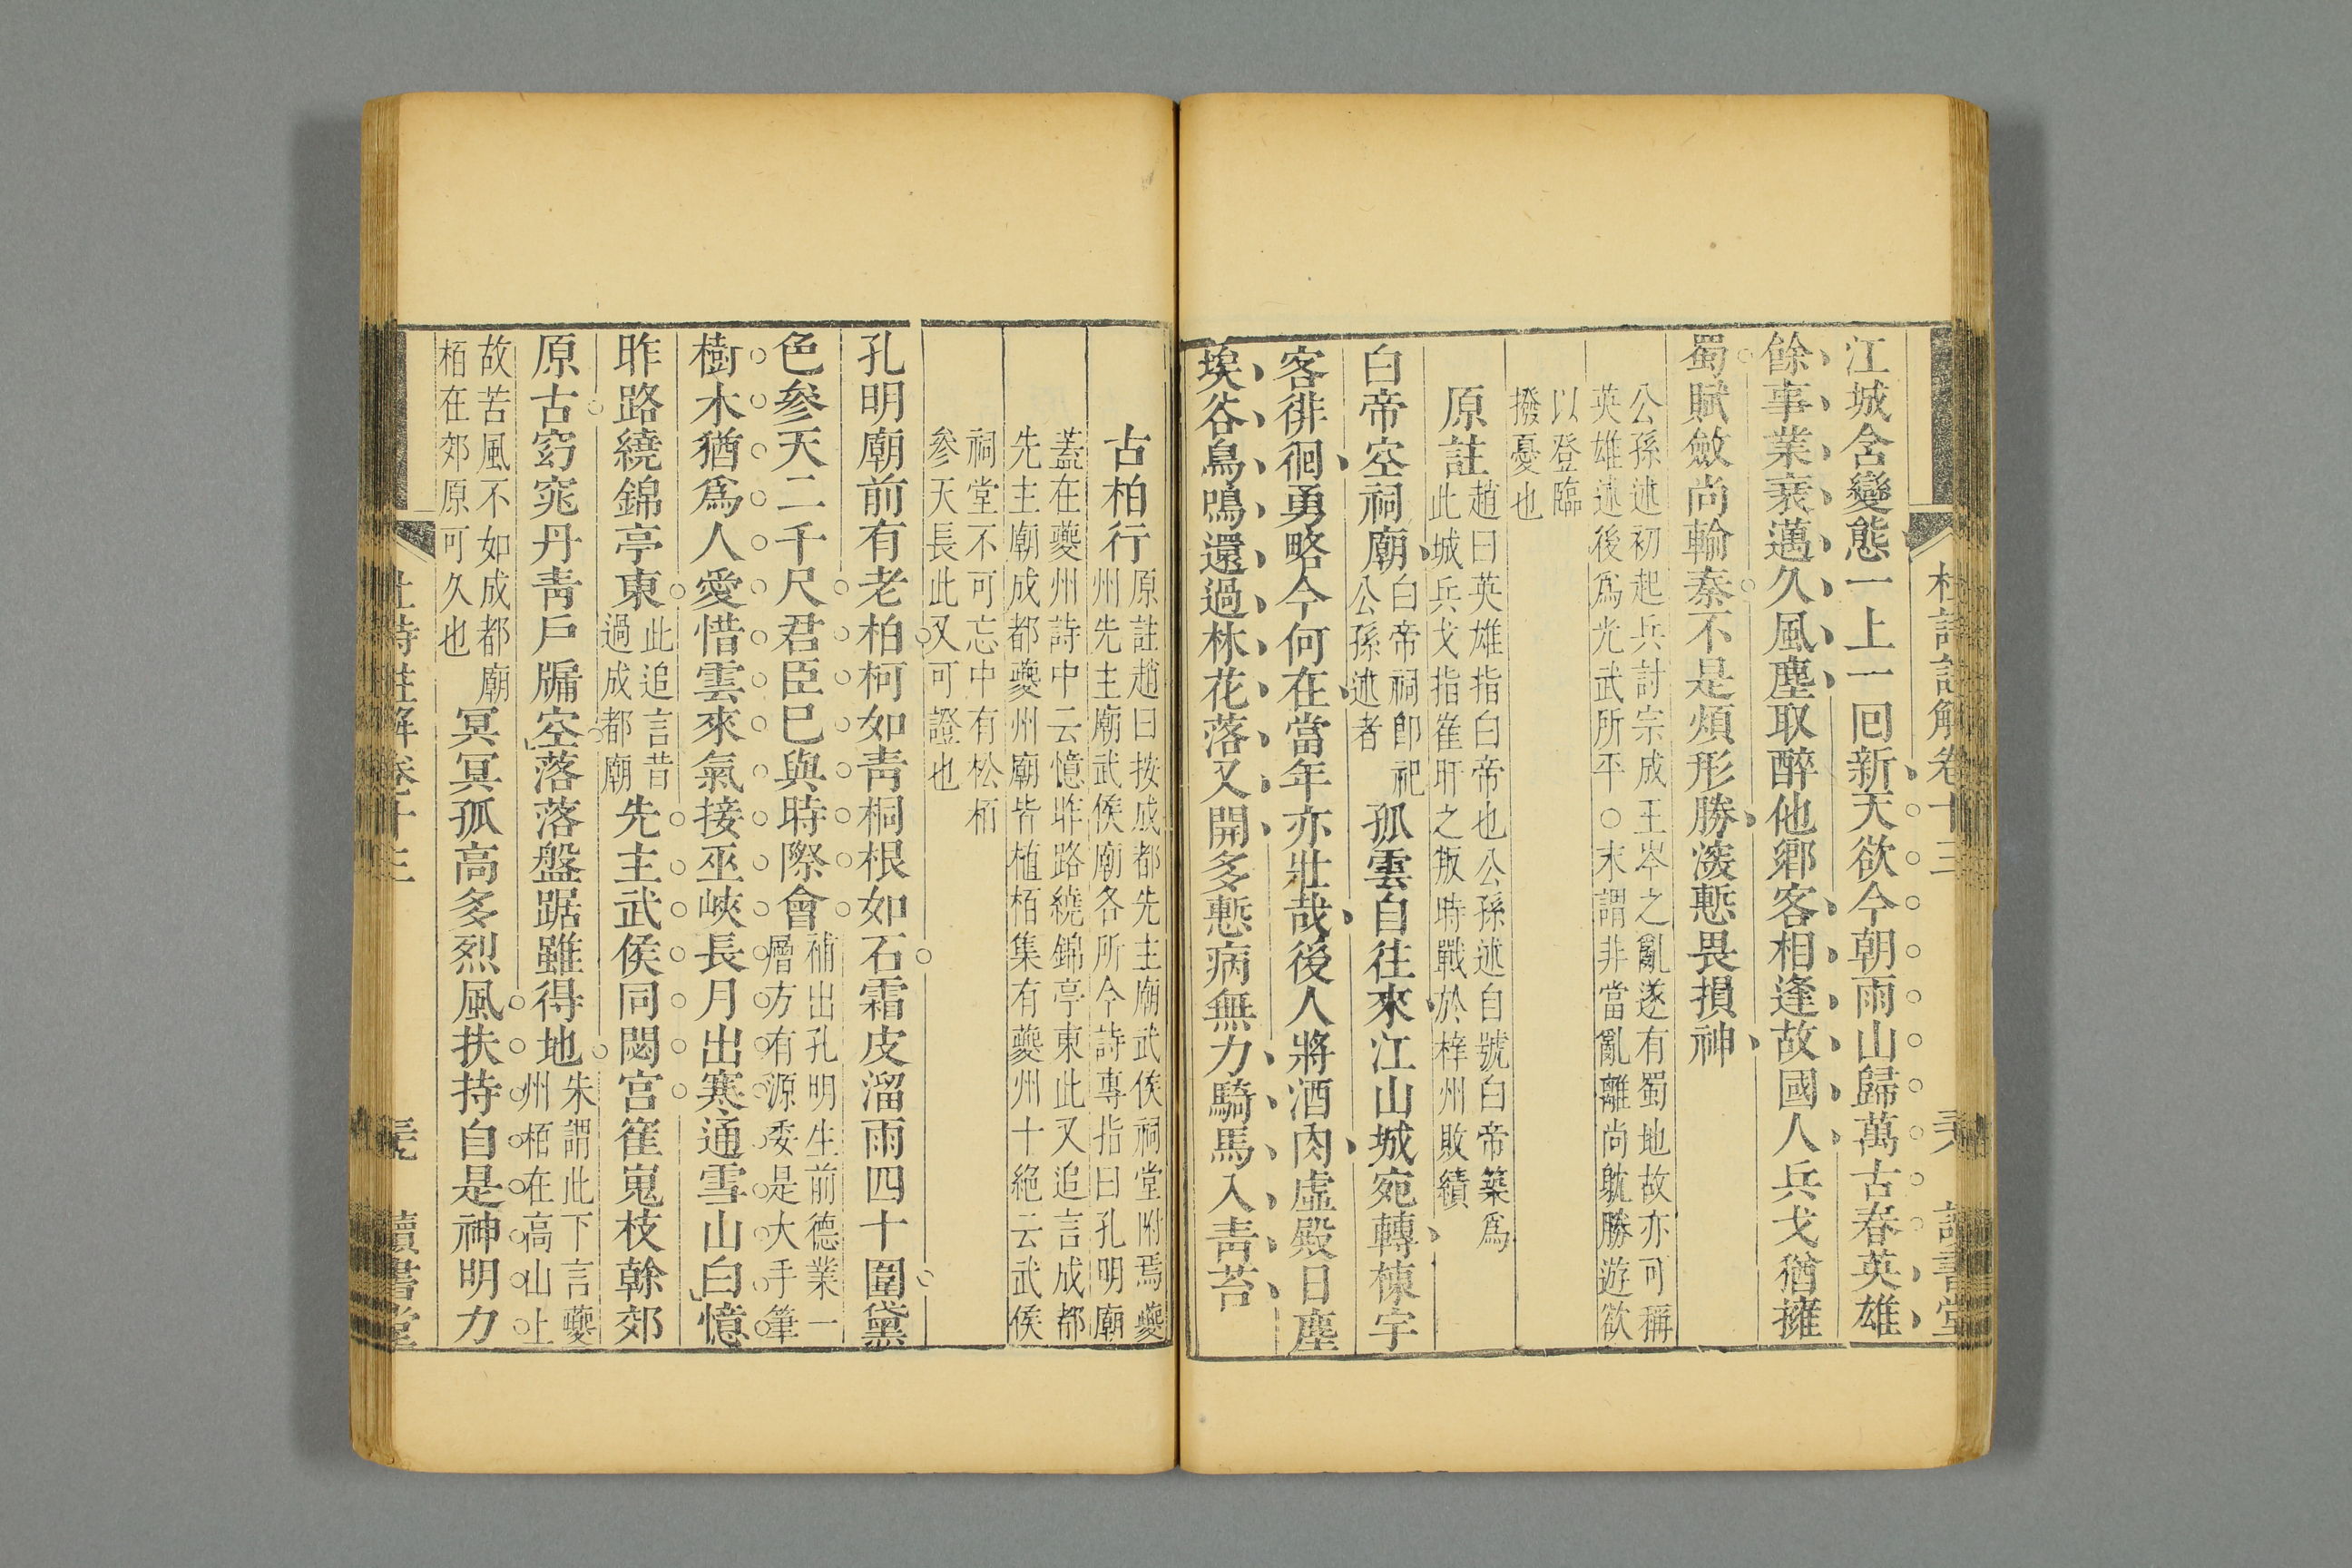 江城含變態一上一回新天欲今朝雨山歸萬古春英雄
餘事業衰邁久風塵取醉他鄉客相逢故國人兵戈猶擁
蜀賦斂尚輸秦不是煩形勝深慙畏損神
公孫述初起兵討宗成王岑之亂遂有蜀地故亦可稱
英雄述後爲光武所平○末謂非當亂離尚躭勝遊欲
以登臨
撥憂也
原註
趙曰英雄指白帝也公孫述自號白帝築爲
此城兵戈指崔旰之叛時戰於梓州敗績
白帝空祠廟
白帝祠卽祀
公孫述者
孤雲自往來江山城宛轉棟宇
客徘徊勇略今何在當年亦壯哉後人將酒肉虛殿日塵
埃谷鳥鳴還過林花落又開多慙病無力騎馬入靑苔
古柏行
原註趙曰按成都先主廟武侯祠堂附焉夔
州先主廟武侯廟各所今詩專指曰孔明廟
蓋在夔州詩中云憶昨路繞錦亭東此又追言成都
先主廟成都夔州廟皆植栢集有夔州十絶云武侯
祠堂不可忘中有松栢
參天長此又可證也
孔明廟前有老柏柯如靑桐根如石霜皮溜雨四十圍黛
色參天二千尺君臣已與時際會
補出孔明生前德業一
層方有源委是大手筆
樹木猶爲人愛惜雲來氣接巫峽長月出寒通雪山白憶
昨路繞錦亭東
此追言昔
過成都廟
先主武侯同閟宮崔嵬枝榦郊
原古窈窕丹靑戶牖空落落盤踞雖得地
朱謂此下言夔
州栢在高山上
故苦風不如成都廟
栢在郊原可久也
冥冥孤高多烈風扶持自是神明力
杜詩註解卷十三
讀書堂